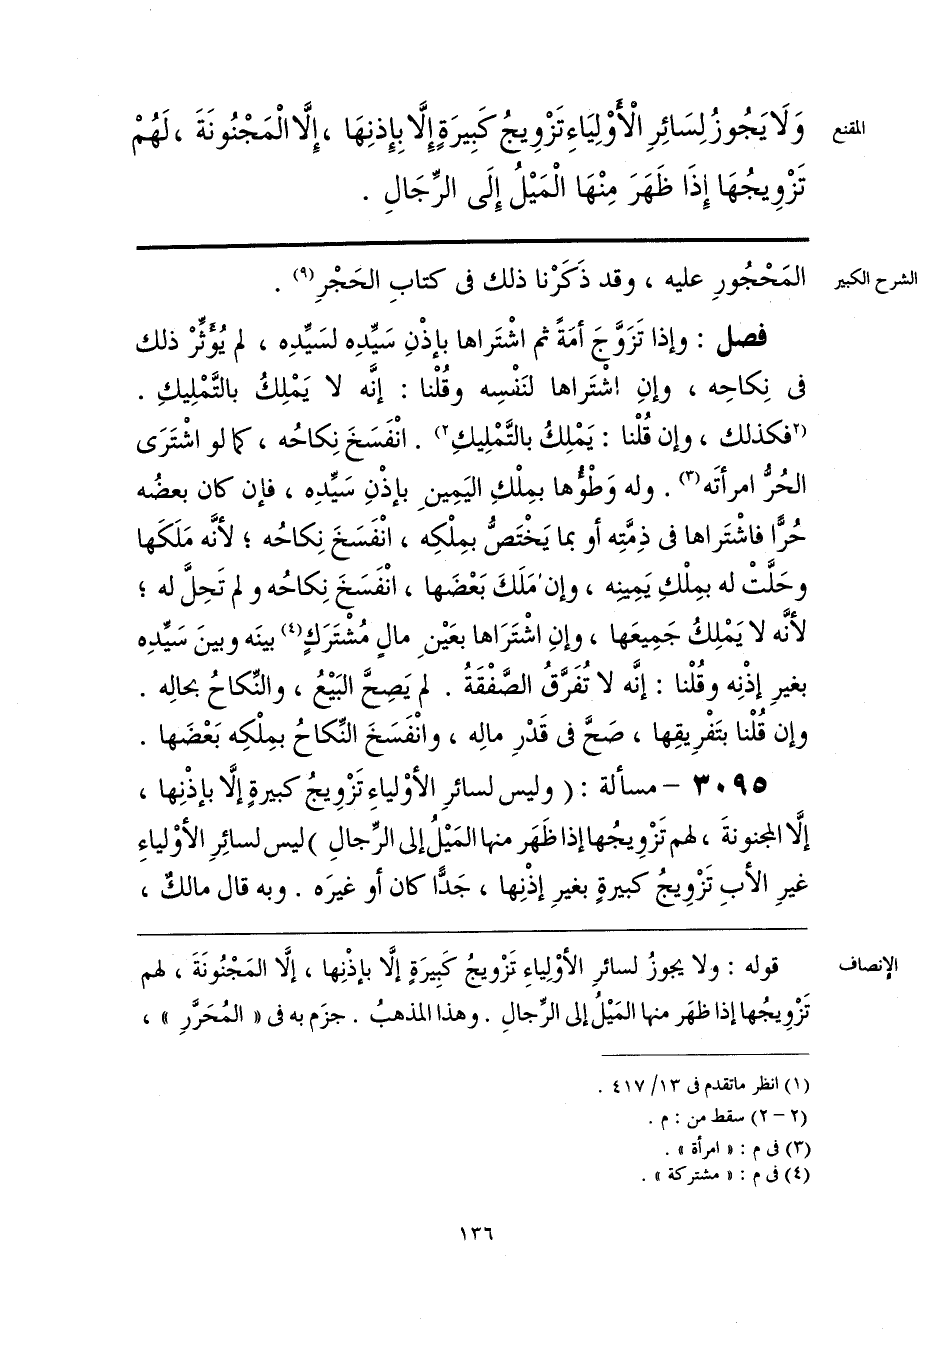 المقنع
وَلَا يَجُوزُ لِسَائِرِ الْأَوْلِيَاءِ تَزْوِيجُ كَبِيرَةٍ إِلَّا بِإِذنِهَا ، إِلَّا الْمَجْنُونَةَ ، لَهُمْ
تَزْوِيجُهَا إِذَا ظَهَرَ مِنْهَا الْمَيْلُ إِلَى الرِّجَالِ .
الشرح الكبير
المَحْجُورِ عليه ، وقد ذَكَرْنا ذلك فى كتابِ الحَجْرِ(٩) .
فصل : وإذا تَزَوَّجَ أمَةً ثم اشْتَراها بإذْنِ سَيِّدِه لسَيِّدِه ، لم يُؤَثِّرْ ذلك
فى نِكاحِه ، وإنِ اشْتَراها لنَفْسِه وقُلْنا : إنَّه لا يَمْلِكُ بالتَّمْلِيكِ .
(٢فكذلك ، وإن قُلْنا : يَمْلِكُ بالتَّمْلِيكِ٢) . انْفَسَخَ نِكاحُه ، كما لو اشْتَرَى
الحُرُّ امرأتَه(٣) . وله وَطْؤُها بمِلْكِ اليَمِينِ بإذْنِ سَيِّدِه ، فإن كان بعضُه
حُرًّا فاشْتَراها فى ذِمَّتِه أو بما يَخْتَصُّ بمِلْكِه ، انْفَسَخَ نِكاحُه ؛ لأنَّه مَلَكَها
وحَلَّتْ له بمِلْكِ يَمِينِه ، وإن مَلَكَ بَعْضَها ، انْفَسَخَ نِكاحُه و لم تَحِلَّ له ؛
لأنَّه لا يَمْلِكُ جَمِيعَها ، وإنِ اشْتَرَاها بعَيْنِ مالٍ مُشْتَرَكٍ(٤) بينَه وبينَ سَيِّدِه
بغيرِ إذْنِه وقُلْنا : إنَّه لا تُفَرَّقُ الصَّفْقَةُ . لم يَصِحَّ البَيْعُ ، والنِّكاحُ بحالِه .
وإن قُلْنا بتَفْرِيقِها ، صَحَّ فى قَدْرِ مالِه ، وانْفَسَخَ النِّكاحُ بمِلْكِه بَعْضَها .
٣٠٩٥ – مسألة : ( وليس لسائرِ الأوْلياءِ تَزْوِيجُ كبيرةٍ إلَّا بإذْنِها ،
إلَّا المجنونةَ ، لهم تَزْوِيجُها إذا ظَهَر منها المَيْلُ إلى الرِّجالِ ) ليس لسائِرِ الأوْلياءِ
غيرِ الأبِ تَزْوِيجُ كبيرةٍ بغيرِ إذْنِها ، جَدًّا كان أو غيرَه . وبه قال مالكٌ ،
الإنصاف
قوله : ولا يجوزُ لسائرِ الأوْلِياءِ تَزْوِيجُ كَبِيرَةٍ إلَّا بإذْنِها ، إلَّا المَجْنُونَةَ ، لهم
تَزْوِيجُها إذا ظهَر منها المَيْلُ إلى الرِّجالِ . وهذا المذهبُ . جزَم به فى « المُحَرَّرِ » ،
(١) انظر ماتقدم فى ١٣/ ٤١٧ .
(٢ – ٢) سقط من : م .
(٣) فى م : « امرأة » .
(٤) فى م : « مشتركة » .
١٣٦